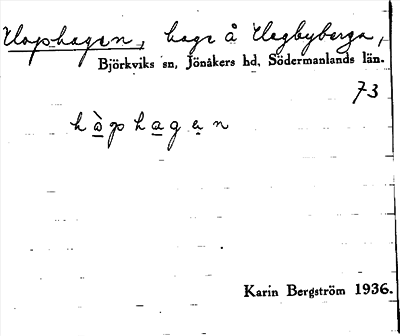 Hophagen, hage å Hagbyberga,
Björkviks sn, Jönåkers hd, Södermanlands län.
73
hò̱pha̱gₑn
Karin Bergström 1936.